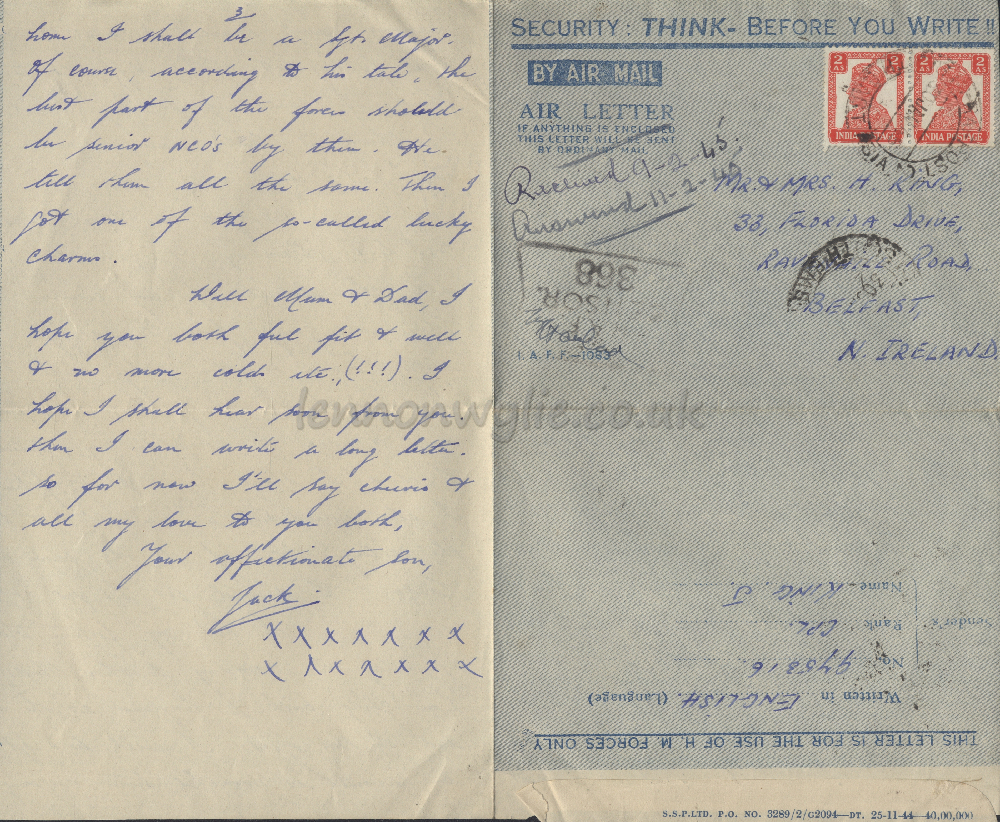 3
home I shall be a Sgt. Major.
Of course, according to his tale, the
best part of the forces should
be senior NCO's by then. He
tell them all the same. Then I
got one of the so-called lucky
charms.
Well Mum & Dad, I
hope you both feel fit & well
& no more colds etc., (!!!). I
hope I shall hear soon from you.
then I can write a long letter.
So for now I'll say cheerio &
all my love to you both,
Your affectionate son,
Jack.
X X X X X X X
X X X X X X X
SECURITY: THINK- BEFORE YOU WRITE!!
BY AIR MAIL
AIR LETTER
IF ANYTHING IS ENCLOSED
THIS LETTER WILL BE SENT
BY ORDINARY MAIL
2 AS 2 AS
INDIA POSTAGE INDIA POSTAGE
Received 9-2-45.
Answered 11-2-45
MR. & MRS. H. KING,
33, FLORIDA DRIVE,
ROAD,
BELFAST,
N. IRELAND
368
I. A. F. F.—1083
lennonwylie.co.uk
THIS LETTER IS FOR THE USE OF H. M. FORCES ONLY
Written in ENGLISH. (Language)
No. 975816
Sender's Rank CPL.
Name KING. J
S.S.P.LTD. P.O. NO. 3289/2/G2094—DT. 25-11-44—40,00,000